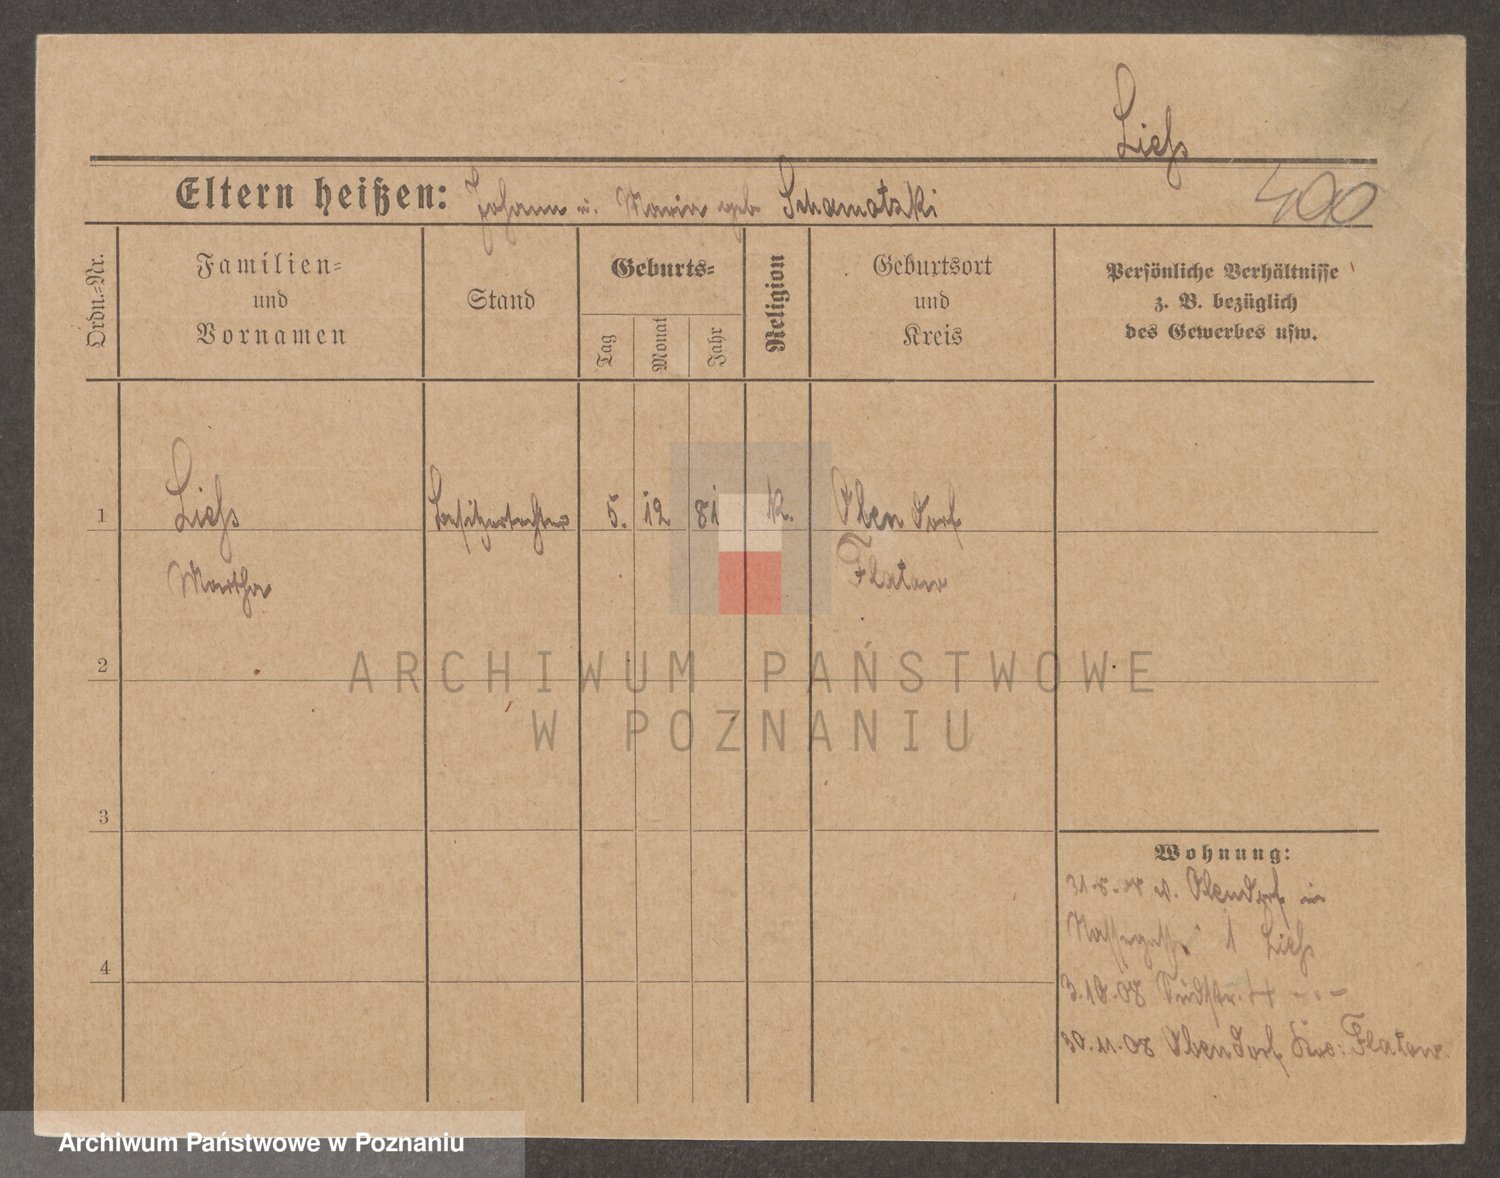 Liess
Eltern heißen: Johann u. Maria geb. Schamotzki
400
Ordn.-Nr.
Familien-
und
Vornamen
Stand
Geburts-
Tag
Monat
Jahr
Religion
Geburtsort
und
Kreis
Persönliche Verhältnisse
z. B. bezüglich
des Gewerbes usw.
1
Liess
Besitzertochter
5. 12 81
k.
Obendorf
Martha
Flatow
2
3
4
Wohnung:
31.5.08 v. Obendorf in
1 Liess
3.10.08 Südstr. 4 - " -
30.11.08 Obendorf Krs. Flatow.
ARCHIWUM PAŃSTWOWE
W POZNANIU
Archiwum Państwowe w Poznaniu